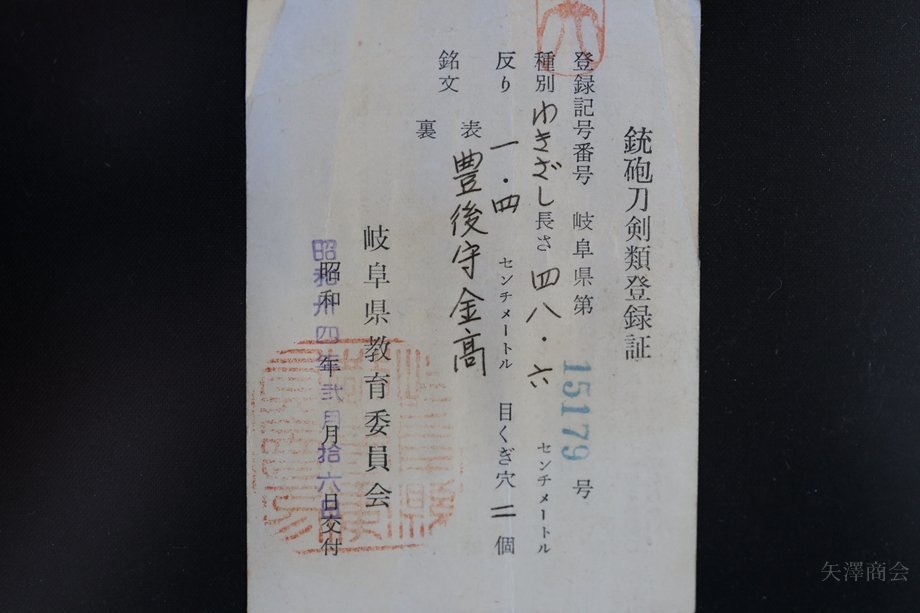 銃砲刀剣類登録証
登録記号番号 岐阜県第 15179 号
種別 わきざし 長さ 四八・六 センチメートル
反り 一・四 センチメートル 目くぎ穴 二 個
銘文
表 豊後守金高
裏
岐阜県教育委員会
昭和卅四年弐月拾六日
昭和 年 月 日交付
矢澤商会